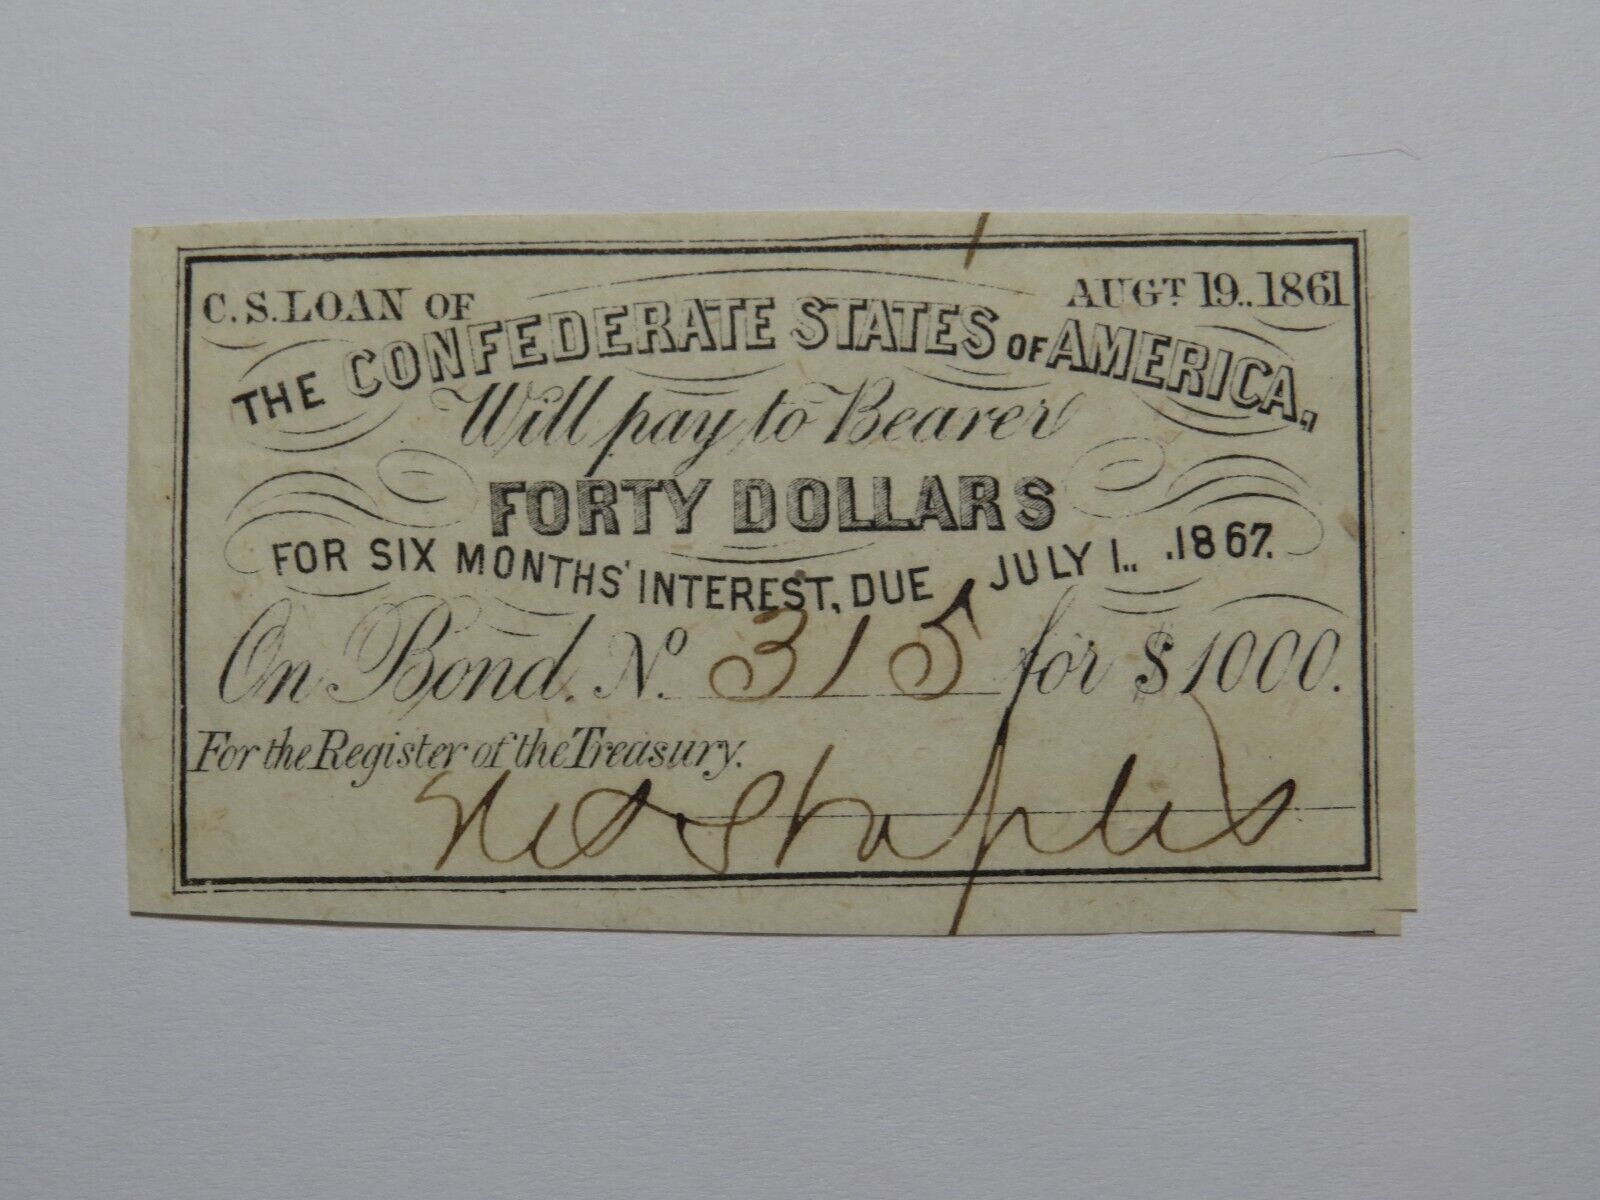 C. S. LOAN OF AUGT. 19.. 1861
THE CONFEDERATE STATES OF AMERICA,
Will pay to Bearer
FORTY DOLLARS
FOR SIX MONTHS' INTEREST, DUE JULY 1.. .1867.
On Bond. No. 315 for $1000.
For the Register of the Treasury.
Staples